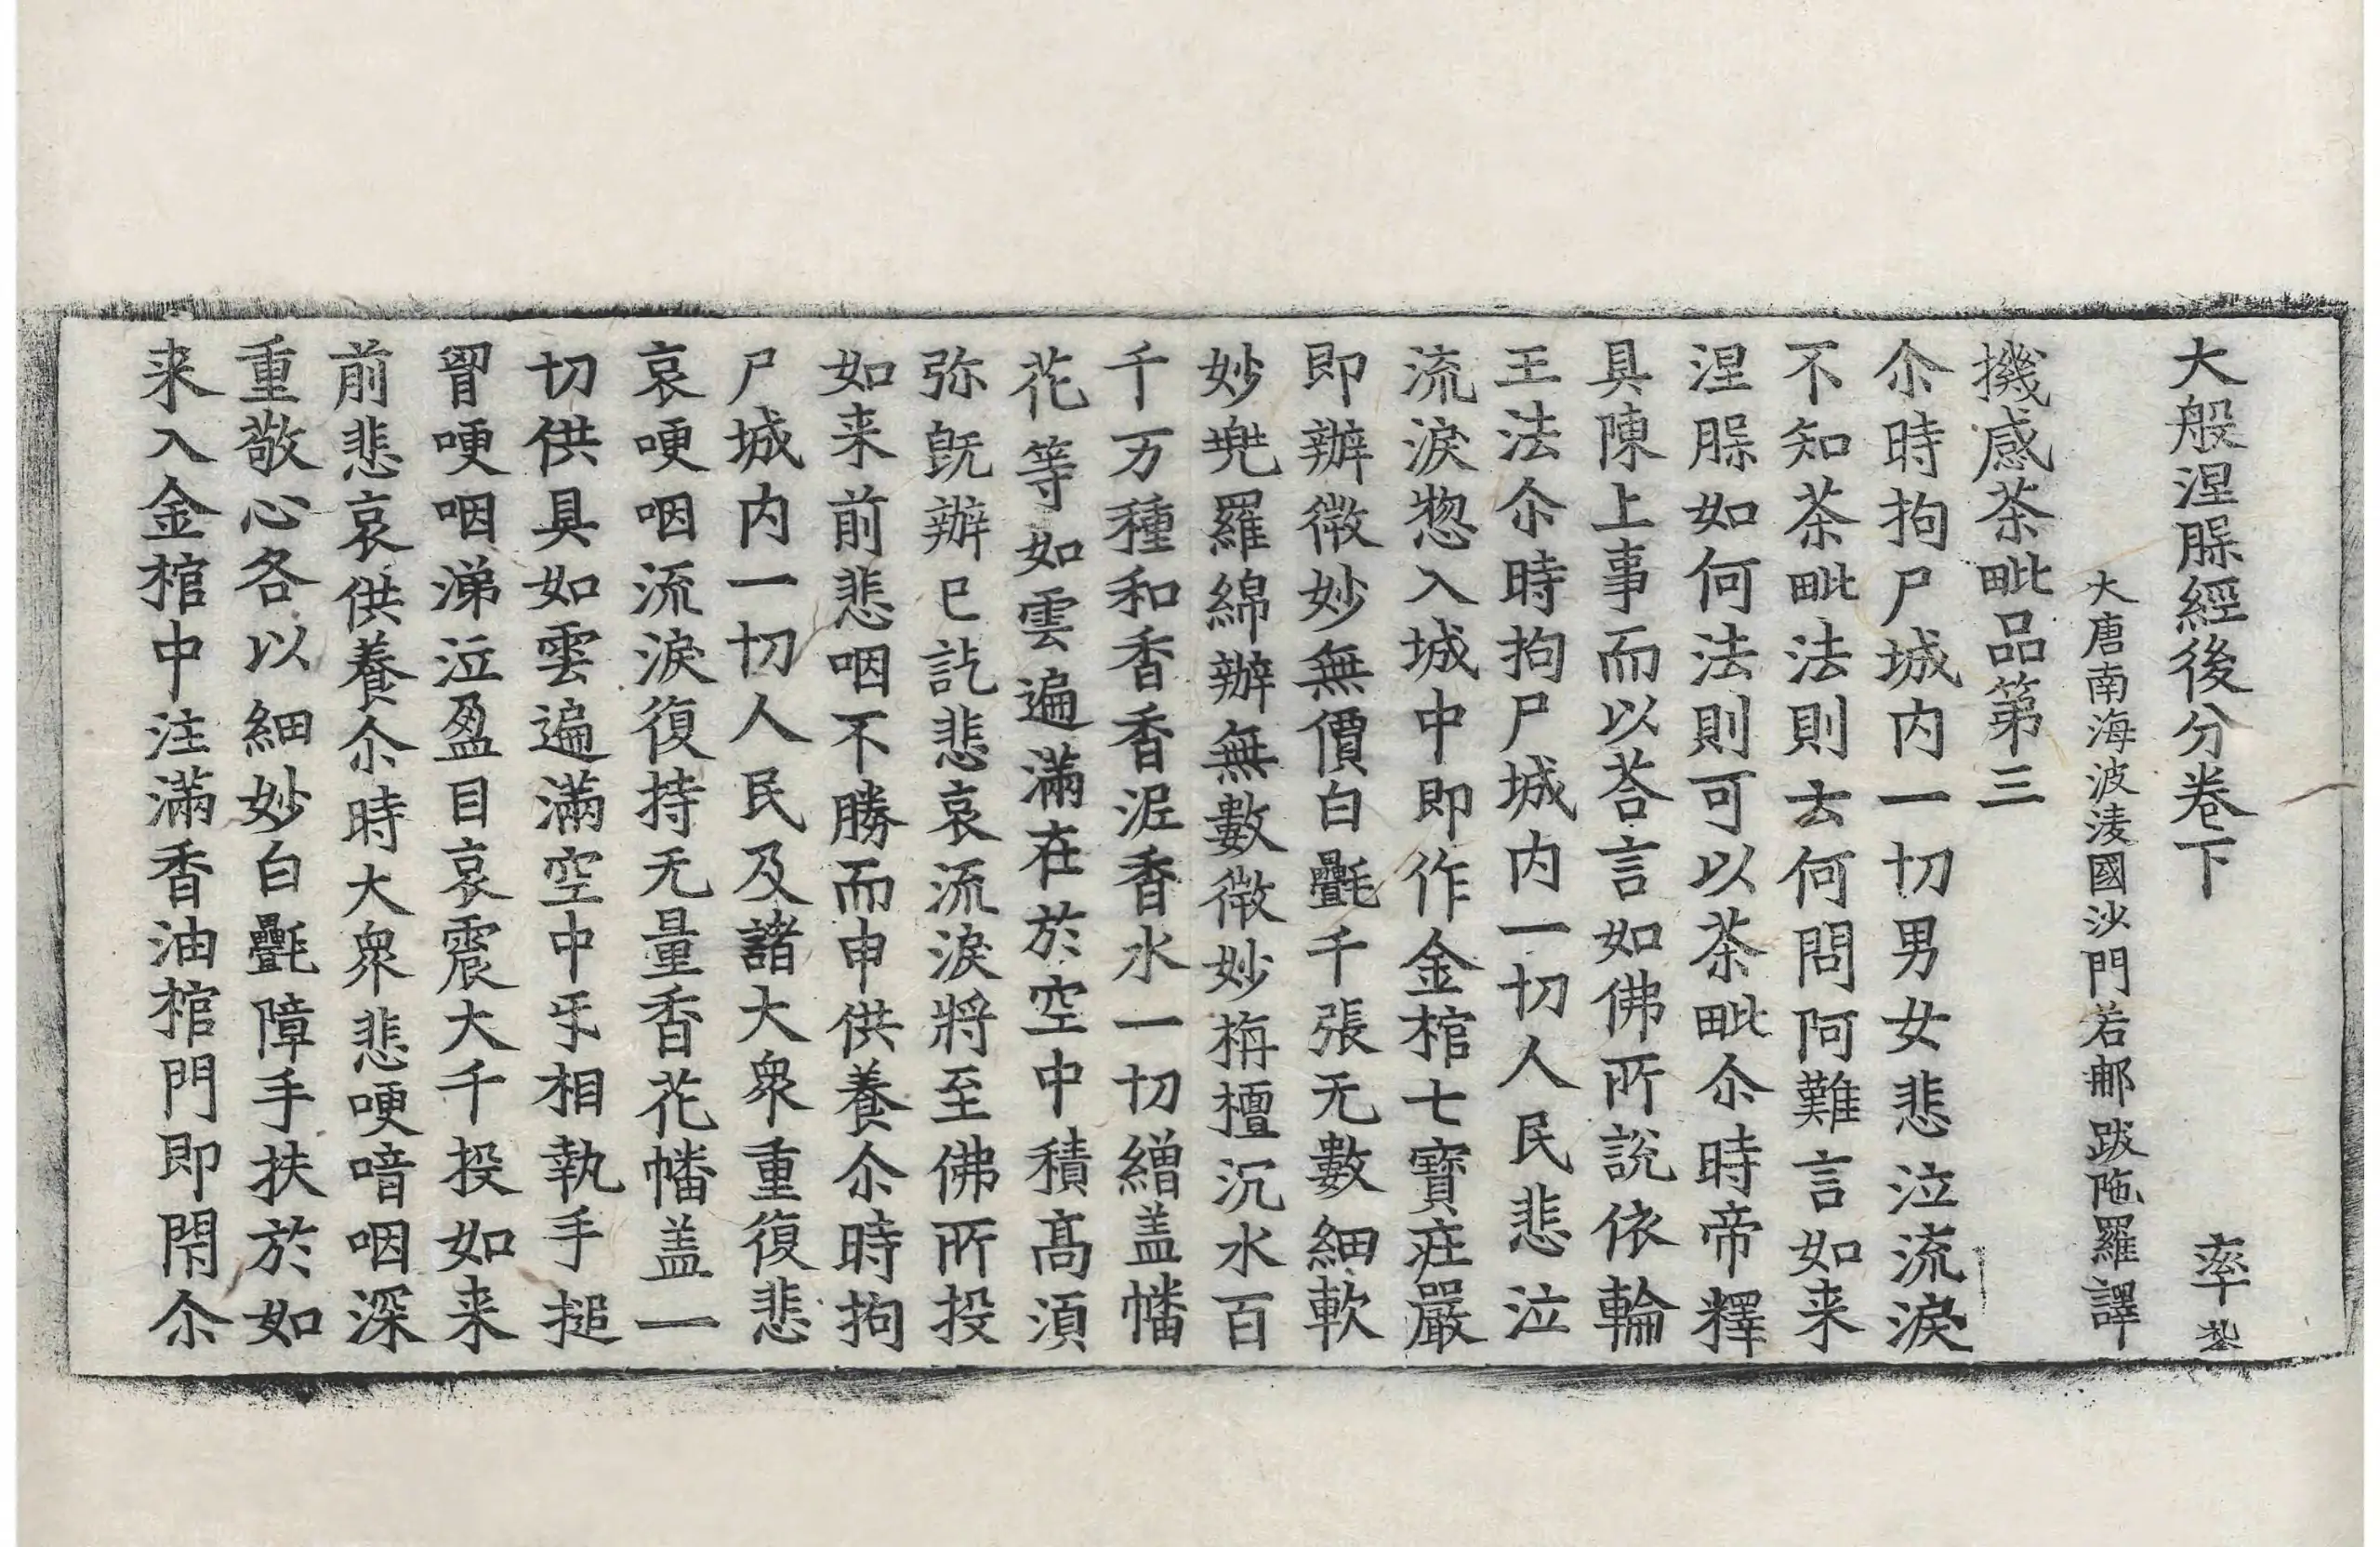 大般涅膎經後分卷下 率
大唐南海波淩國沙門若那跋陁羅譯
機感茶毗品第三
尒時拘尸城内一切男女悲泣流淚
不知茶毗法則云何問阿難言如来
涅膎如何法則可以茶毗尒時帝釋
具陳上事而以荅言如佛所說依輪
王法尒時拘尸城内一切人民悲泣
流淚惣入城中即作金棺七寶莊嚴
即辦微妙無價白㲲千張无數細軟
妙兠羅綿辦無數微妙栴檀沉水百
千万種和香香泥香水一切繒盖幡
花等如雲遍滿在於空中積髙湏
弥旣辦已訖悲哀流淚將至佛所投
如来前悲咽不勝而申供養尒時拘
尸城内一切人民及諸大衆重復悲
哀哽咽流淚復持无量香花幡盖一
切供具如雲遍滿空中㸦相執手搥
胷哽咽涕泣盈目哀震大千投如来
前悲哀供養尒時大衆悲哽喑咽深
重敬心各以細妙白㲲障手扶於如
来入金棺中注滿香油棺門即閇尒